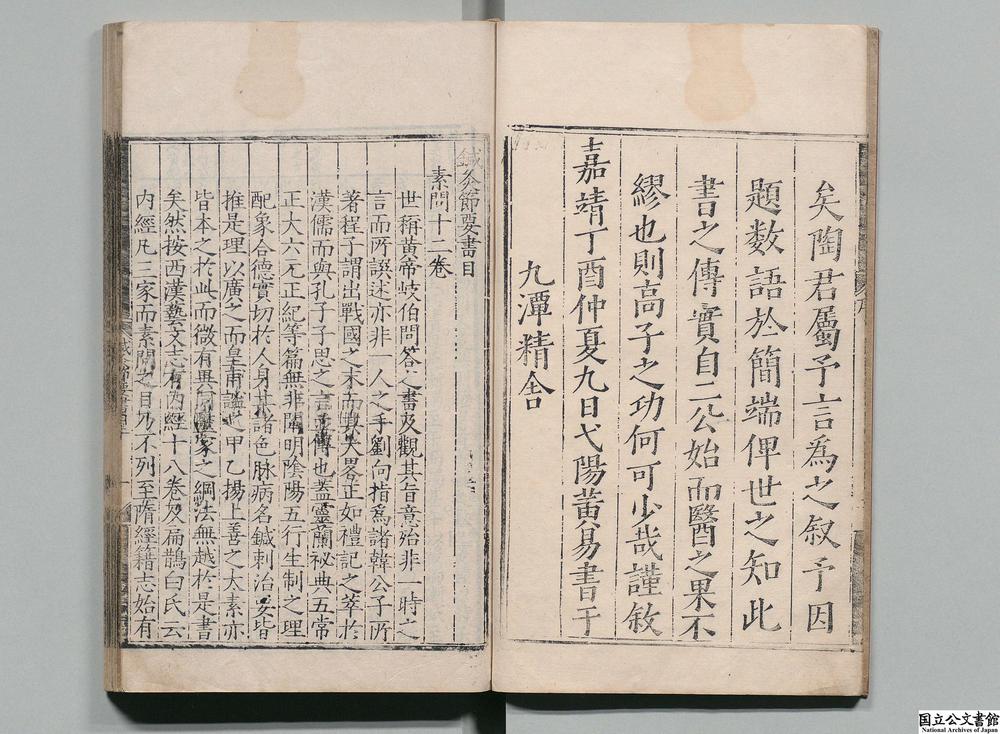 矣陶君屬予言為之叙予因
題数語於簡端俾世之知此
書之傳實自二公始而醫之果不
繆也則高子之功何可少哉謹敘
嘉靖丁酉仲夏九日弋陽黄易書于
九潭精舍
鍼灸節要書目
素問十二卷
世稱黄帝岐伯問答之書及觀其旨意殆非一時之
言而所譔述亦非一人之手劉向指為諸韓公子所
著程子謂出戰國之末而其大畧正如禮記之萃於
漢儒而與孔子子思之言並傳也蓋靈蘭祕典五常
正大六元正紀等篇無非闡明陰陽五行生制之理
配象合德實切於人身其諸色脉病名鍼刺治要皆
推是理以廣之而皇甫謐之甲乙楊上善之太素亦
皆本之於此而微有異同醫家之綱法無越於是書
矣然按西漢藝文志有内經十八卷及扁鵲白氏云
内經凡三家而素問之目乃不列至隋經籍志始有
国立公文書館
National Archives of Japan